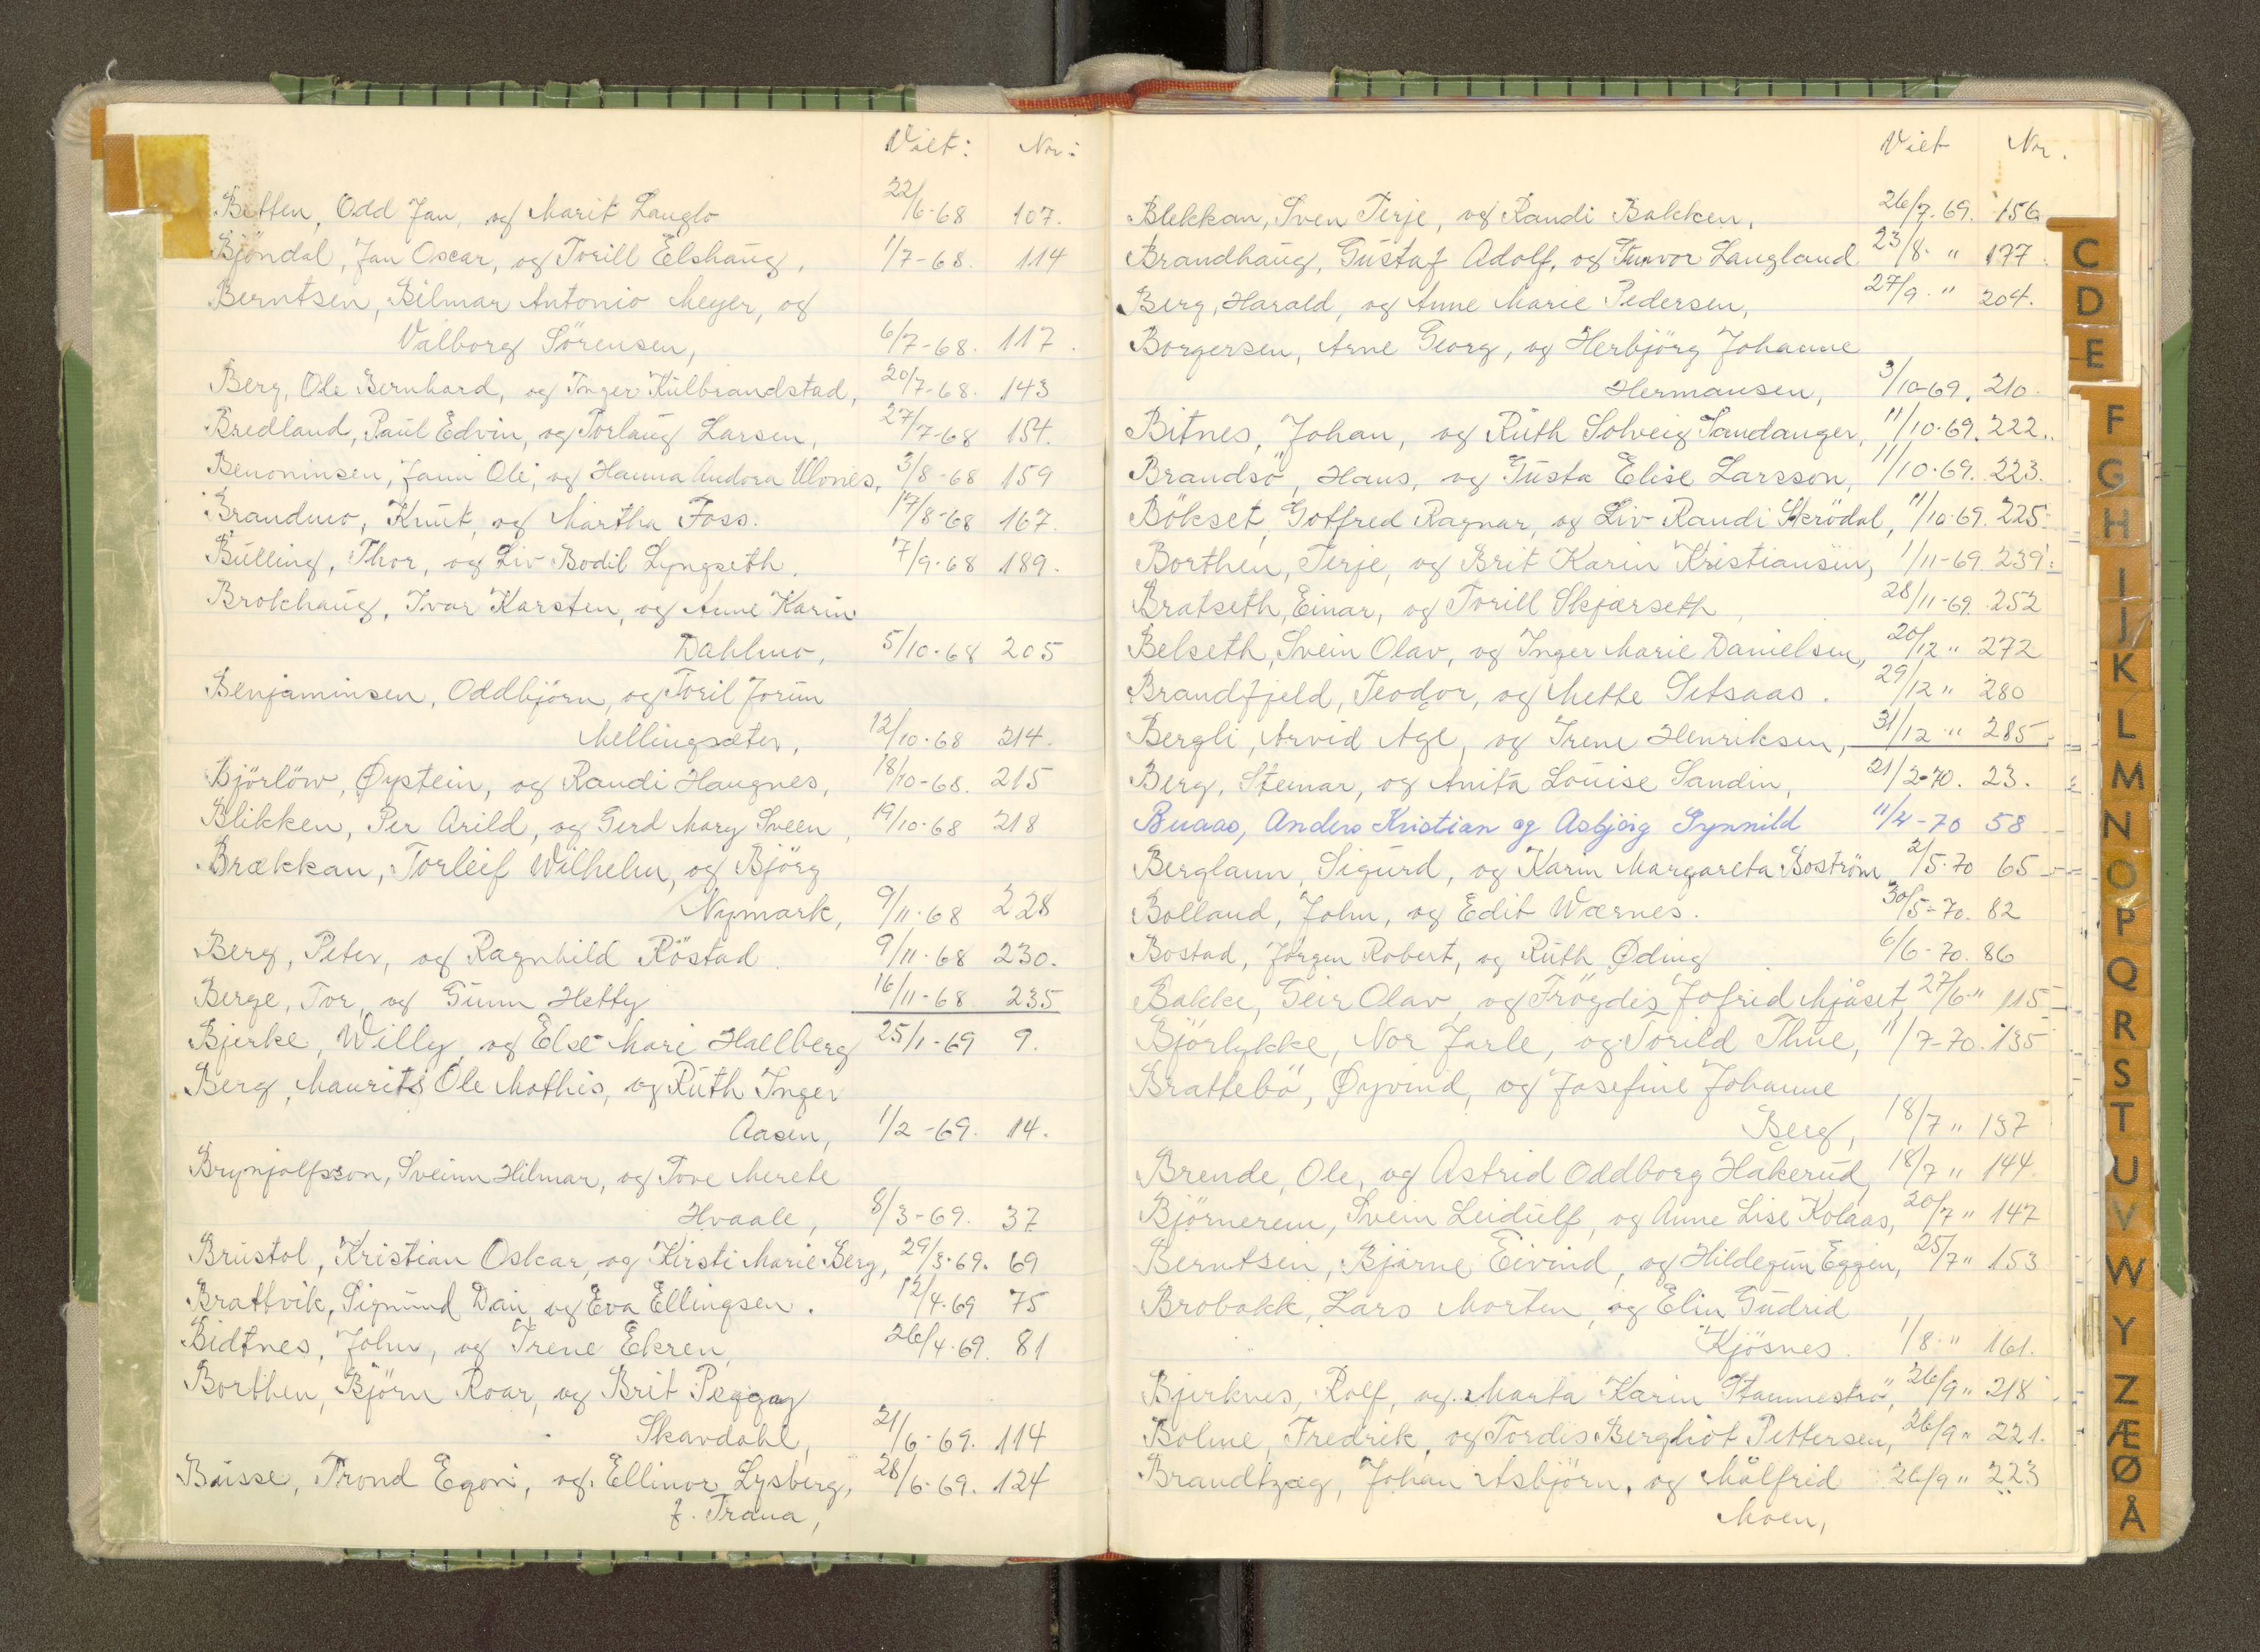 Viet: Nr:
Betten, Odd Jan, og Marit Langlo 22/6-68 107.
Bjöndal, Jan Oscar, og Torill Elshaug, 1/7-68. 114
Berntsen, Hilmar Antonio Meyer, og
Valborg Sörensen, 6/7-68. 117.
Berg, Ole Bernhard, og Inger Kulbrandstad, 20/7-68. 143
Bredland, Paul Edvin, og Torlaug Larsen, 27/7-68 154.
Benoninsen, Ole, og Hanna Andora 3/8-68 159
Brandmo, Knut, og Martha Foss. 17/8-68 167.
Bulling, Thor, og Liv Bodil Lyngseth, 7/9-68 189.
Brokhaug, Ivar Karsten, og Anne Karin
Dahlmo, 5/10-68 205
Benjaminsen, Oddbjörn, og Toril Jorun
Mellingsæter, 12/10-68 214.
Björlöw, Øystein, og Randi Haugnes, 18/10-68. 215
Blikken, Per Arild, og Gerd Mary Sveen, 19/10-68 218
Brækkan, Torleif Wilhelm, og Björg
Nymark, 9/11-68 228
Berg, Peter, og Ragnhild Röstad. 9/11-68 230.
Berge, Tor, og Gunn Hetty 16/11-68 235
Bjerke, Willy, og Else Mari Hallberg 25/1-69 9.
Berg, Maurits Ole Mathis, og Ruth Inger
Aasen, 1/2-69. 14.
Brynjolfsson, Sveinn Hilmar, og Tove Merete
Hvaale, 8/3-69. 37
Brustol, Kristian Oskar, og Kirsti Marie Berg, 29/3-69. 69
Brattvik, Sigmund Dan, og Eva Ellingsen. 12/4-69 75
Bidtnes, John, og Irene Ekren, 26/4-69. 81
Borthen, Björn Roar, og Brit Peggy
Skavdahl, 21/6-69. 114
Busse, Trond Egon, og Ellinor Lysberg, 28/6-69. 124
f. Trana,
Viet Nr.
Blekkan, Sven Terje, og Randi Bakken, 26/7-69. 156
Brandhaug, Gustaf Adolf, og Tunvor Langland 23/8- " 177.
Berg, Harald, og Anne Marie Pedersen, 27/9- " 204.
Borgersen, Arne Georg, og Herbjörg Johanne
Hermansen, 3/10-69. 210.
Bitnes, Johan, og Ruth Solveig Sandanger, 11/10-69. 222.
Brandsö, Hans, og Gusta Elise Larsson, 11/10-69. 223.
Bökset, Gotfred Ragnar, og Liv Randi Skrödal, 11/10-69. 225.
Borthen, Terje, og Brit Karin Kristiansen, 1/11-69. 239.
Bratseth, Einar, og Torill Skjærseth, 28/11-69. 252
Belseth, Svein Olav, og Inger Marie Danielsen, 20/12 " 272
Brandfjeld, Teodor, og Mette Setsaas. 29/12 " 280
Bergli, Arvid Åge, og Irene Henriksen, 31/12 " 285
Berg, Steinar, og Anita Louise Sandin, 21/2-70. 23.
Buaas, Anders Kristian og Asbjörg Synnild 11/4-70 58
Berglann, Sigurd, og Karin Margareta Boström 2/5-70 65
Bolland, John, og Edit Wærnes. 30/5-70. 82
Bostad, Jörgen Robert, og Ruth Øding 6/6-70. 86
Bakke, Geir Olav, og Frögdis Jofrid Mjåset, 27/6 " 115
Björlykke, Nor Jarle, og Torild Thue, 11/7-70. 135
Brattebö, Øyvind, og Josefine Johanne
Berg, 18/7 " 137
Brende, Ole, og Astrid Oddborg Håkerud, 18/7 " 144.
Björnerem, Svein Leidulf, og Anne Lise Kolaas, 20/7 " 147
Berntsen, Bjarne Eivind, og Hildegun Eggen, 25/7 " 153
Brobakk, Lars Morten, og Elin Gudrid
Kjösnes. 1/8 " 161.
Bjerknes, Rolf, og Marta Karin Stamneströ, 26/9 " 218
Bolme, Fredrik, og Tordis Bergliot Pettersen, 26/9 " 221.
Brandtzæg, Johan Asbjörn, og Målfrid 26/9 " 223
Moen,
C
D
E
F
G
H
I
J
K
L
M
N
O
P
Q
R
S
T
U
V
W
Y
Z
Æ
Ø
Å